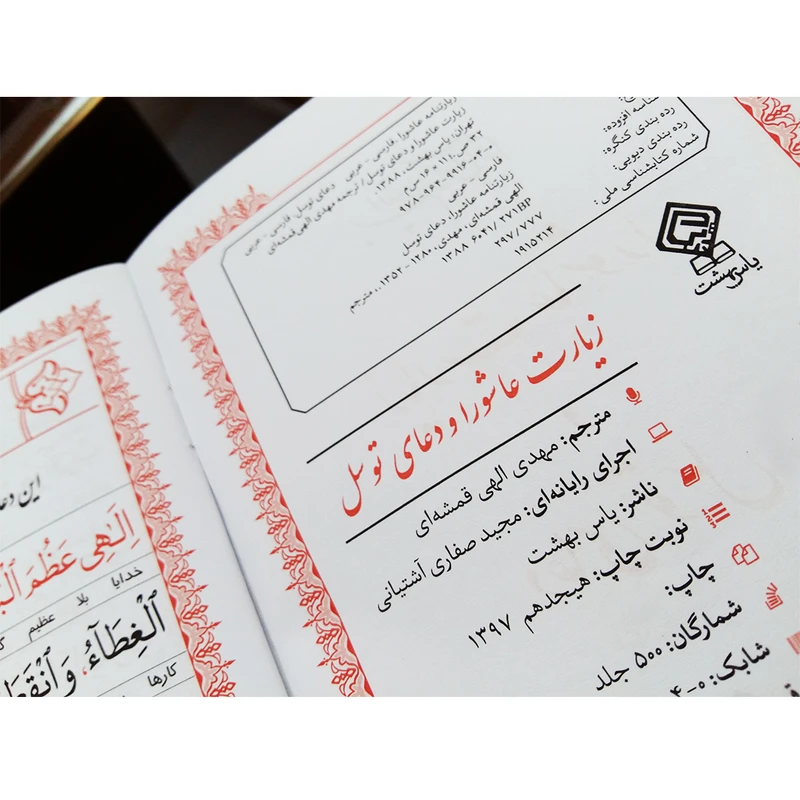 شناسه افزوده:
رده بندی کنگره:
رده بندی دیویی:
شماره کتابشناسی ملی:
زیارتنامه عاشورا. فارسی - عربی
زیارت عاشورا و دعای توسل / ترجمه مهدی الهی قمشه‌ای
تهران: یاس بهشت، ۱۳۸۸.
۳۲ ص.
۹۷۸-۹۶۴-۹۹۱۶-۰۴-۰
فارسی - عربی
زیارتنامه عاشورا، دعای توسل
الهی قمشه‌ای، مهدی، ۱۲۸۰ - ۱۳۵۲.، مترجم
۱۳۸۸ ۶۰۴۱/ ۲۷۱BP
۲۹۷/۷۷۷
۱۹۱۵۲۱۴
یاس بهشت
زیارت عاشورا و دعای توسل
مترجم: مهدی الهی قمشه‌ای
اجرای رایانه‌ای: مجید صفاری آشتیانی
ناشر: یاس بهشت
نوبت چاپ: هیجدهم ۱۳۹۷
چاپ:
شمارگان: ۵۰۰ جلد
شابک: ۰-۴
این دعا
اِلٰهی عَظُمَ الْبَ
خدایا بلا عظیم
الْغِطَآءُ، وَانْقَطَ
کارها